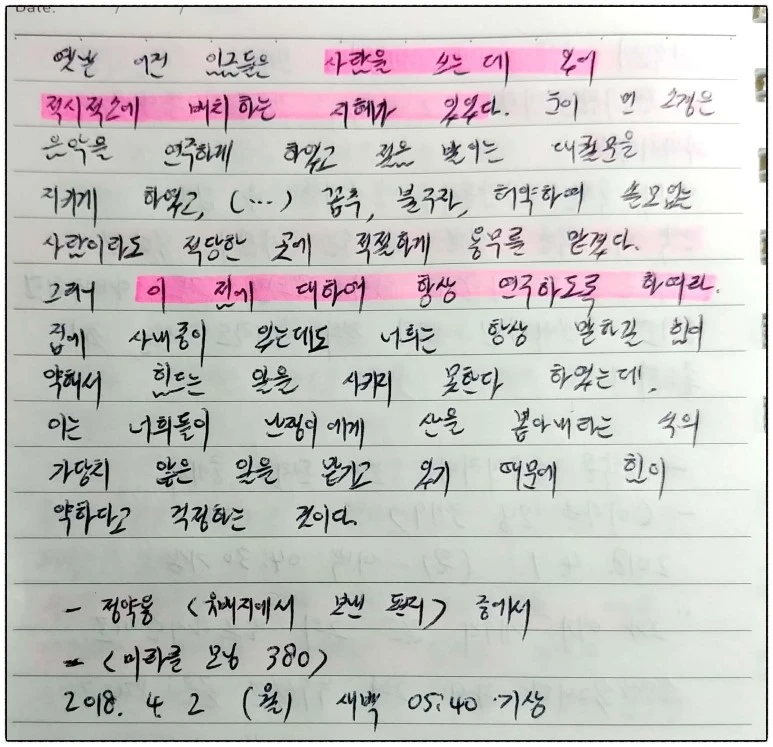 Date.
옛날 어진 임금들은 사람을 쓰는 데 있어
적시적소에 배치하는 지혜가 있었다. 눈이 먼 소경은
음악을 연주하게 하였고 젊은 발이는 대궐문을
지키게 하였고, (...) 꼽추, 불구자, 허약하여 쓸모없는
사람이라도 적당한 곳에 적절하게 용무를 맡겼다.
그러니 이 점에 대하여 항상 연구하도록 하여라.
집에 사내종이 있는데도 너희는 항상 말하길 힘이
약해서 힘드는 일을 시키지 못한다 하였는데,
이는 너희들이 난쟁이에게 산을 뽑아내라는 식의
가당치 않은 일을 맡기고 있기 때문에 힘이
약하다고 걱정하는 것이다.
- 정약용 <유배지에서 보낸 편지> 중에서
- <미라클 모닝 380>
2018. 4. 2 (월) 새벽 05:40 기상